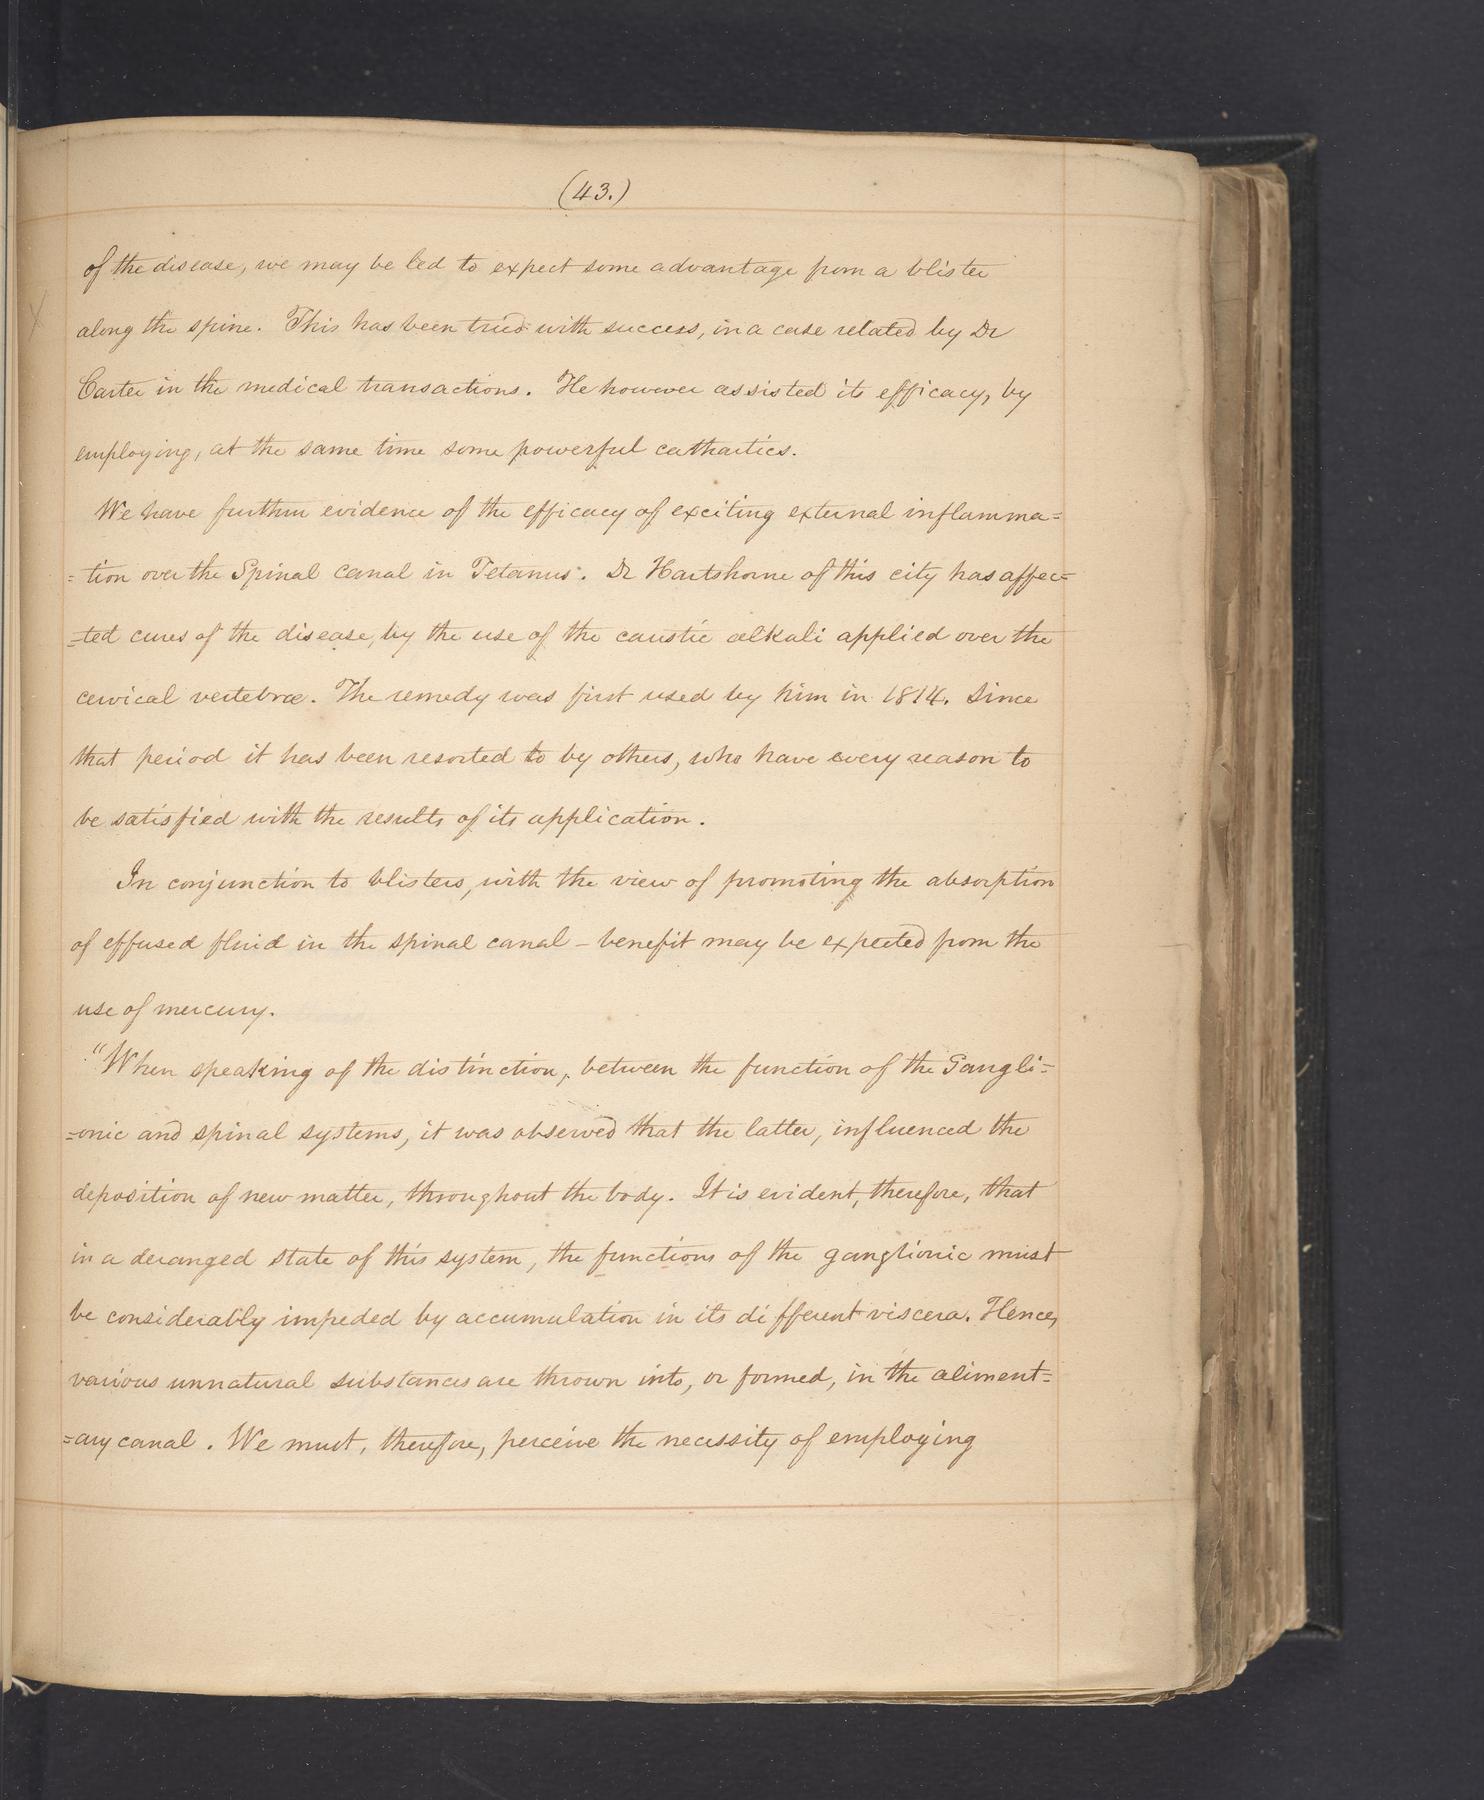 (43.)
of the disease, we may be led to expect some advantage from a blister
along the spine. This has been tried with success, in a case related by Dr
Carter in the medical transactions. He however assisted its efficacy, by
employing, at the same time some powerful cathartics.
We have further evidence of the efficacy of exciting external inflamma=
=tion over the Spinal canal in Tetanus. Dr Hartshorne of this city has affec=
=ted cures of the disease, by the use of the caustic alkali applied over the
cervical vertebræ. The remedy was first used by him in 1814. Since
that period it has been resorted to by others, who have every reason to
be satisfied with the results of its application.
In conjunction to blisters, with the view of promoting the absorption
of effused fluid in the spinal canal - benefit may be expected from the
use of mercury.
"When speaking of the distinction, between the function of the Gangli=
=onic and spinal systems, it was observed that the latter, influenced the
deposition of new matter, throughout the body. It is evident, therefore, that
in a deranged state of this system, the functions of the ganglionic must
be considerably impeded by accumulation in its different viscera. Hence,
various unnatural substances are thrown into, or formed, in the aliment=
=ary canal. We must, therefore, perceive the necessity of employing